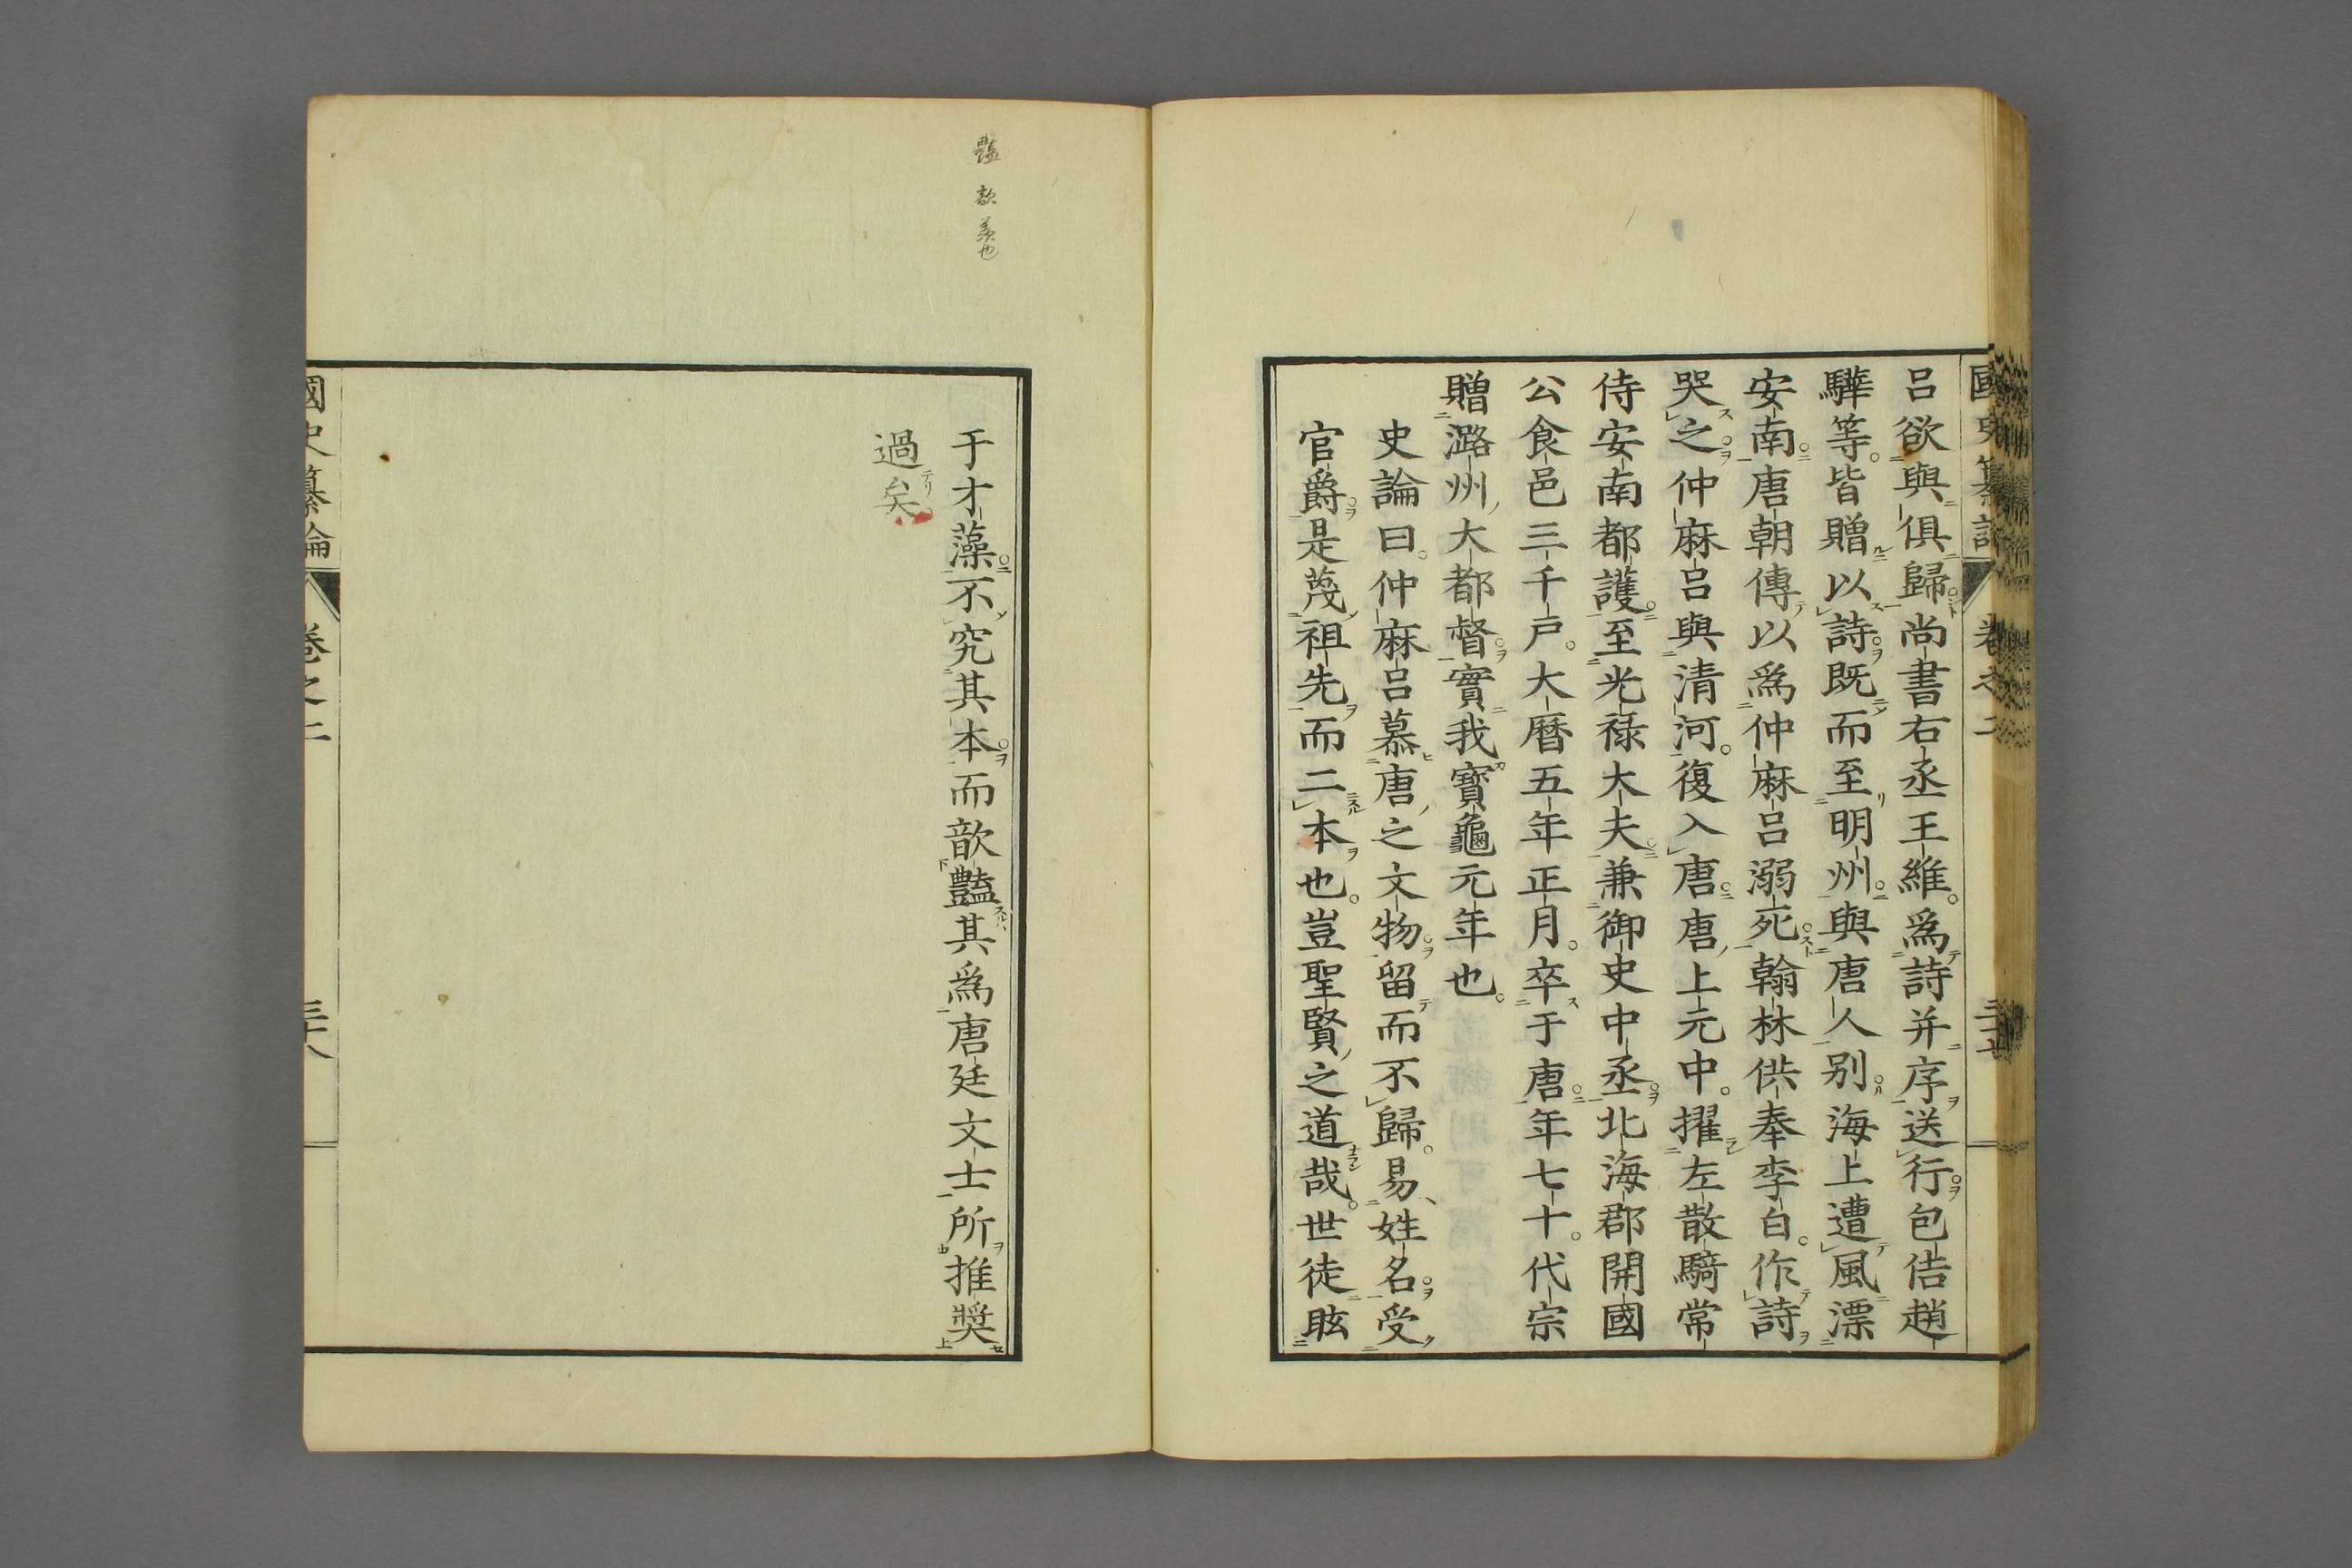 呂欲與俱歸尚書右丞王維。爲詩并序送行包佶趙
驊等。皆贈以詩既而至明州與唐人别海上遭風漂
安南唐朝傳以爲仲麻呂溺死翰林供奉李白。作詩
哭之仲麻呂與清河。復入唐唐上元中。擢左散騎常
侍安南都護至光禄大夫兼御史中丞北海郡開國
公食邑三千戸。大曆五年正月。卒于唐年七十。代宗
贈潞州大都督實我寳龜元年也。
史論曰。仲麻呂慕唐之文物留而不歸。易姓名受
官爵是蔑祖先而二本也。豈聖賢之道哉。世徒眩
于才藻不究其本而歆豔其爲唐廷文士所推奬
過矣。
豔 歆羨也
國史纂論 卷之二 三十八